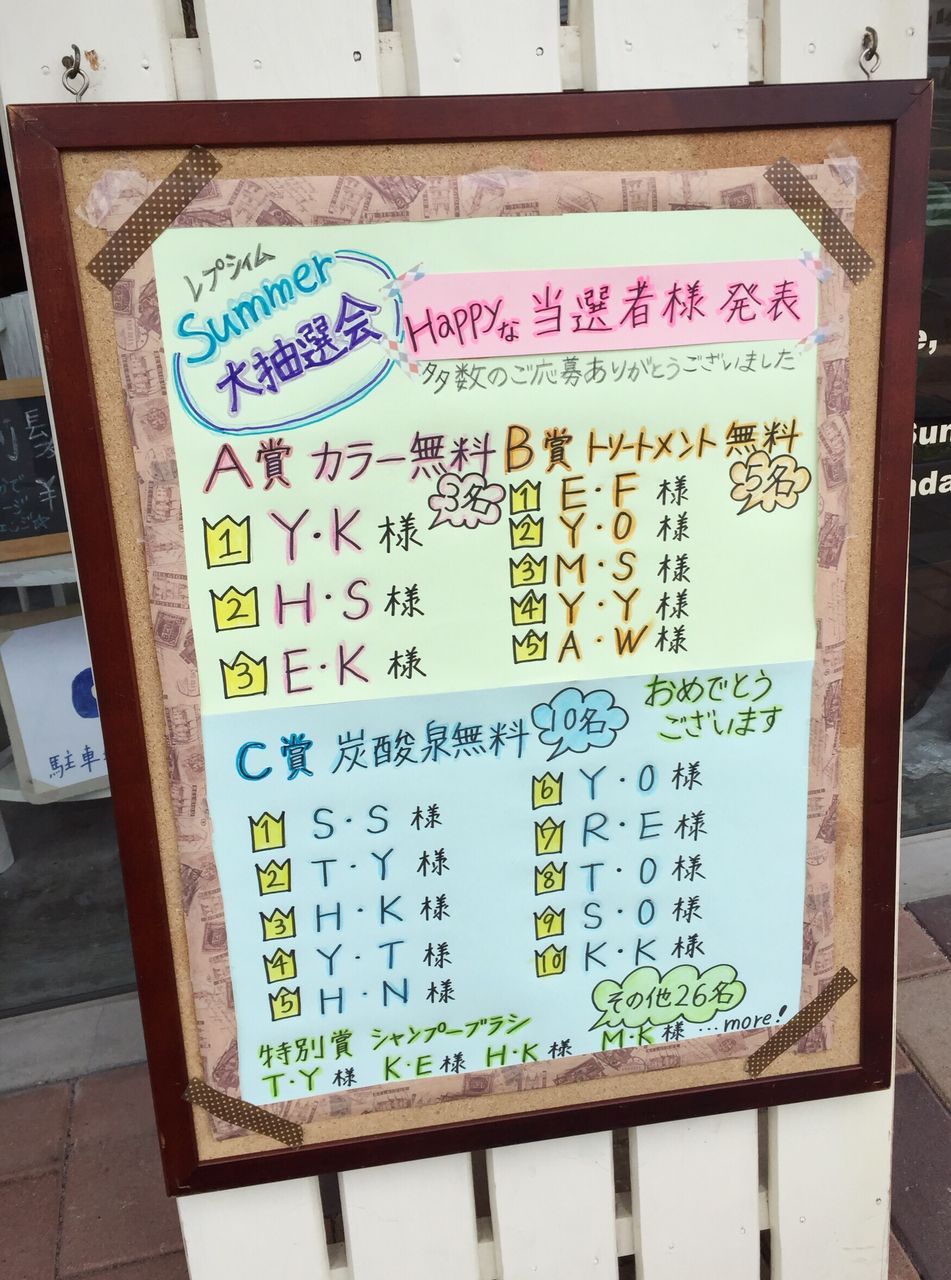 レプシィム
Summer
大抽選会
Happyな当選者様 発表
多数のご応募ありがとうございました
A賞 カラー無料
3名
1 Y・K 様
2 H・S 様
3 E・K 様
B賞 トリートメント 無料
5名
1 E・F 様
2 Y・O 様
3 M・S 様
4 Y・Y 様
5 A・W 様
おめでとう
ございます
C賞 炭酸泉無料
10名
1 S・S 様
2 T・Y 様
3 H・K 様
4 Y・T 様
5 H・N 様
6 Y・O 様
7 R・E 様
8 T・O 様
9 S・O 様
10 K・K 様
その他26名
特別賞 シャンプーブラシ
T・Y 様 K・E 様 H・K 様 M・K 様 …more!
駐車